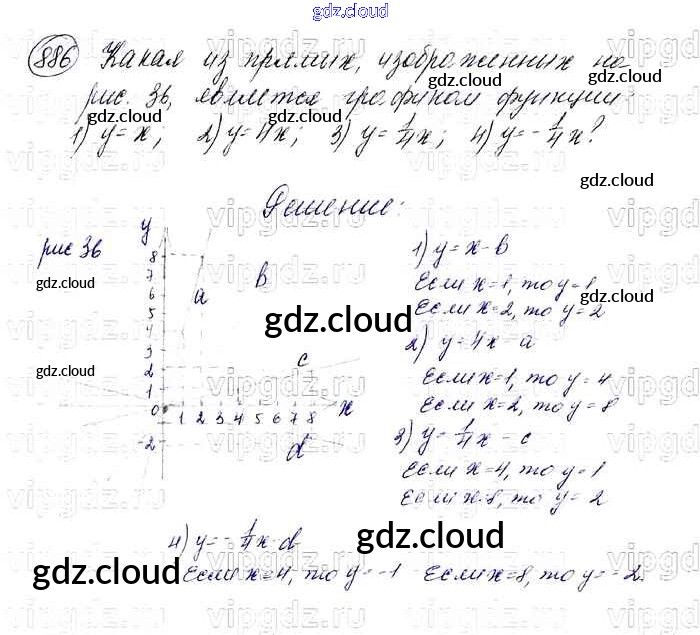 gdz.cloud
886 Какая из прямых, изображенных на
рис. 36, является графиком функции
1) y=x; 2) y=4x; 3) y=1/4x; 4) y=-1/4x?
gdz.cloud gdz.cloud gdz.cloud gdz.cloud
gdz.cloud
Решение:
рис 36
gdz.cloud
gdz.cloud
gdz.cloud
y
8
7
6
5
4
3
2
1
0 1 2 3 4 5 6 7 8 x
-2
a
b
c
d
gdz.cloud
1) y=x - b
Если x=1, то y=1
Если x=2, то y=2
gdz.cloud
2) y=4x - a
Если x=1, то y=4
Если x=2, то y=8
3) y=1/4x - c
Если x=4, то y=1
Если x=8, то y=2
4) y=-1/4x - d
Если x=4, то y=-1 Если x=8, то y=-2
gdz.cloud
gdz.cloud
gdz.cloud
vipgdz.ru